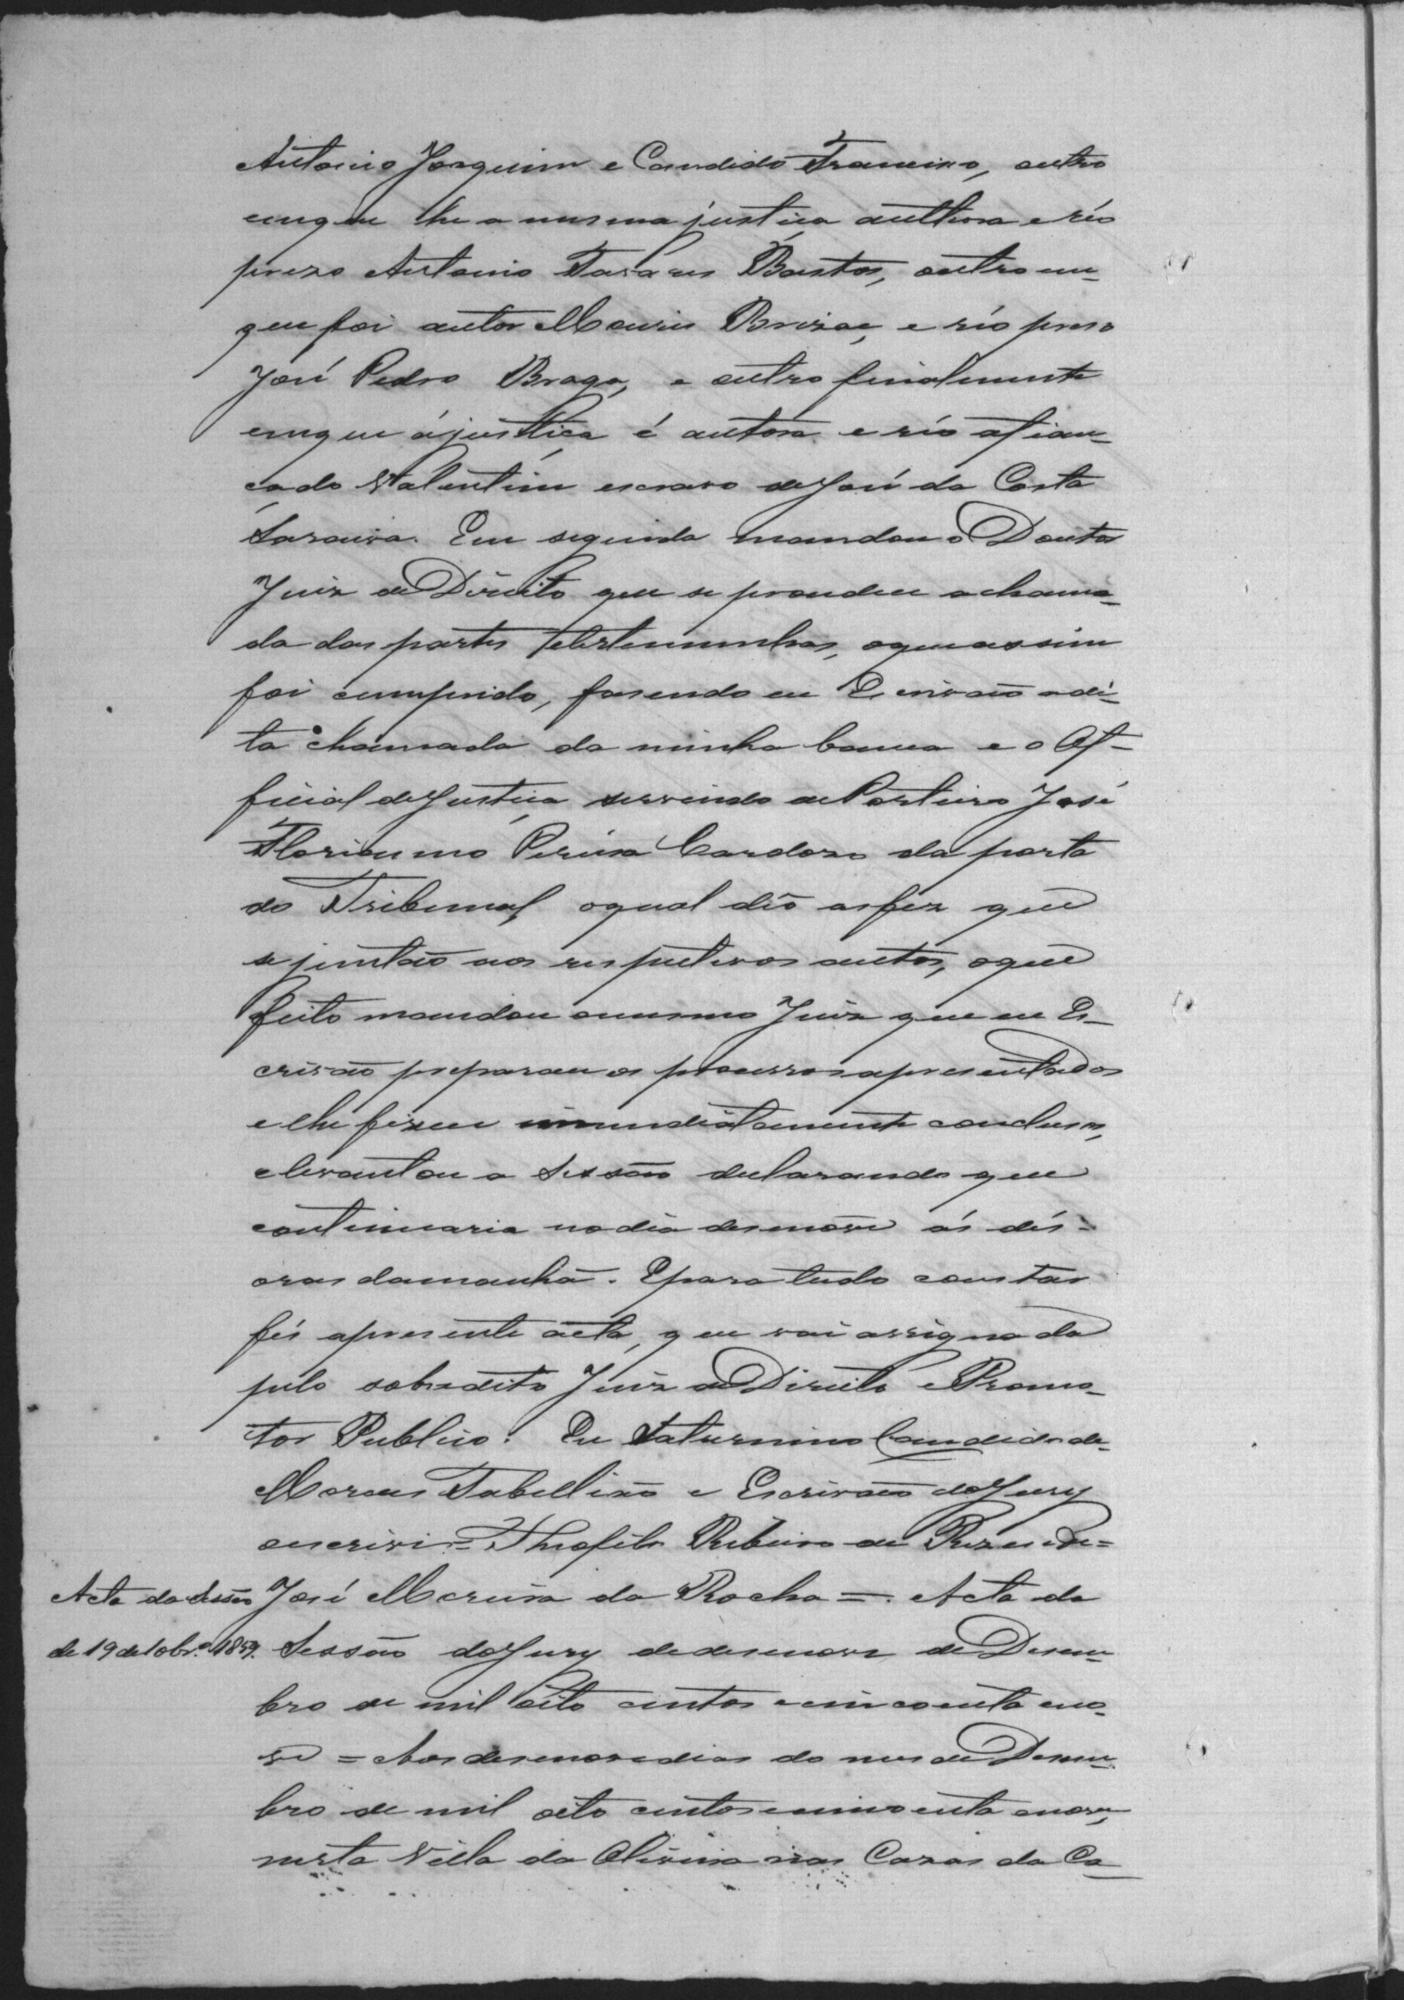 Antonio Joaquim e Candido Francisco, outro
emque he a mesma justiça authora e réo
prezo Antonio Tavares Bastos, outro em-
que foi autor Mauris e réo preso
José Pedro Braga, e outro finalmente
emque á justiça é autora e réo afian-
çado Valentim escravo de José da Costa
Saraiva. Em seguida mandou o Doutor
Juiz de Direito que se procedeu a chama-
da das partes e testemunhas, oqueassim
foi cumprido, fasendo eu Escrivão a di-
ta chamada da minha banca e o Of-
ficial de Justiça servindo de Porteiro José
Florianno Perura Cardozo da porta
do Tribunal, oqual deo asfez que
se juntão aos respetivos autos, oque
feito mandou omesmo Juiz que eu Es-
crivão preparace os processos apresentados
e lhe fizece immediatamente concluzos,
elevantou a Sessão declarando que
continuaria nodia desenove ás dés-
oras damanhã. Epara tudo constar
fés apresente acta, que vai assignada
pelo sobredito Juiz de Direito e Promo-
tor Publico: Eu Saturnino Candido de
Moraes Tabellião e Escrivão do Jury
oescrivi = Theofilo Ribeiro de Rezende =
José Moreira da Rocha = . Acta da
Acta da Sessão
de 19 de 10br.º 1859.
Sessão do Jury dedesenove de Desem-
bro de mil oito centos e cincoenta eno-
ve = Aos desenove dias do mes de Desem-
bro de mil oito centos e cincoenta enove,
nesta Villa da Oliveira nas Cazas da Ca-